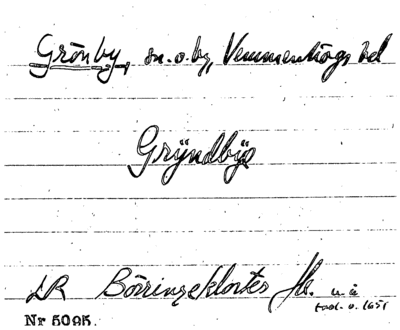 Grönby, sn. o. by, Vemmenhögs hd
Grÿndbÿe
LR Börringekloster Jb. u å
Nr 5095.